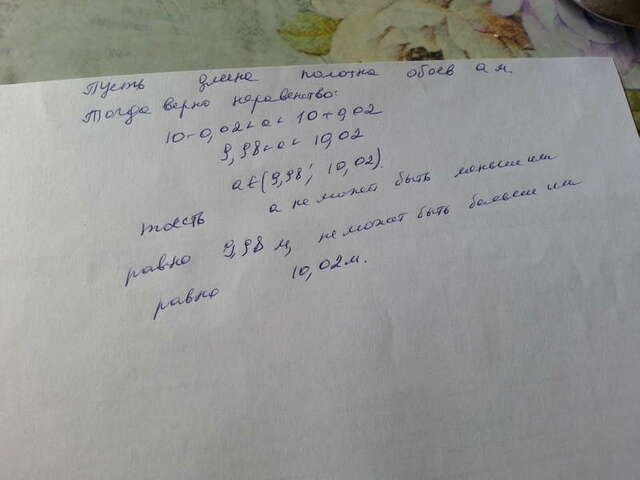 Пусть длина полотна обоев а м.
Тогда верно неравенство:
10-0,02<а<10+0,02
9,98<а<10,02
а∈(9,98; 10,02).
тоесть а не может быть меньше или
равно 9,98 м, не может быть больше или
равно 10,02м.